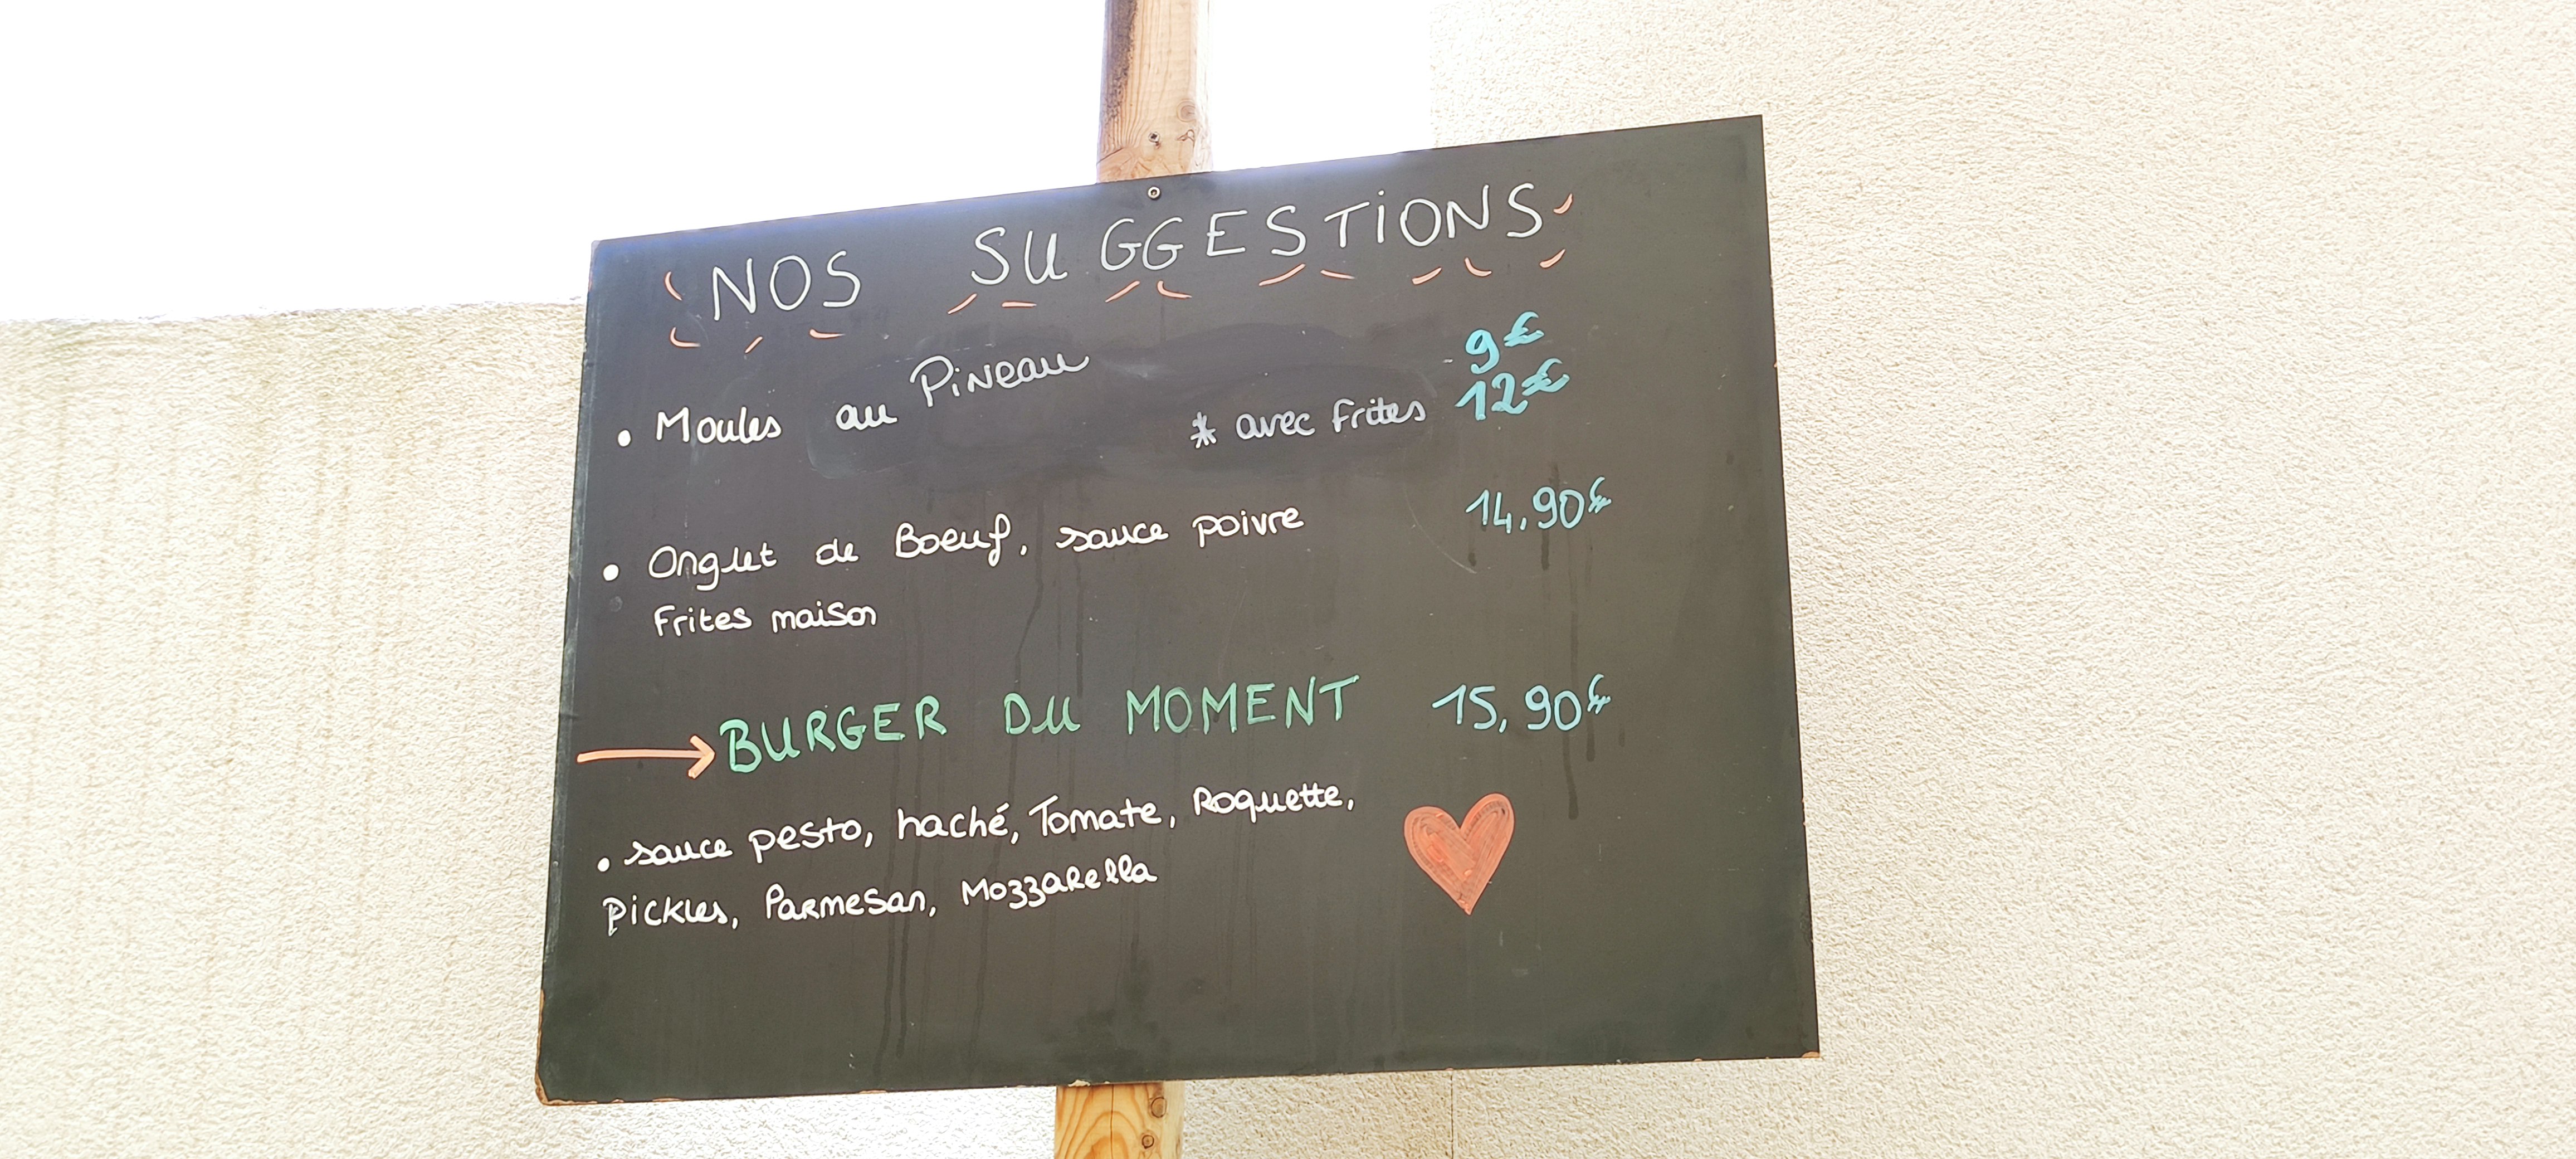 NOS SUGGESTIONS
• Moules au Pineau 9€
* avec Frites 12€
• Onglet de Boeuf, sauce poivre 14,90€
Frites maison
→ BURGER DU MOMENT 15,90€
• sauce pesto, haché, Tomate, Roquette,
Pickles, Parmesan, Mozzarella